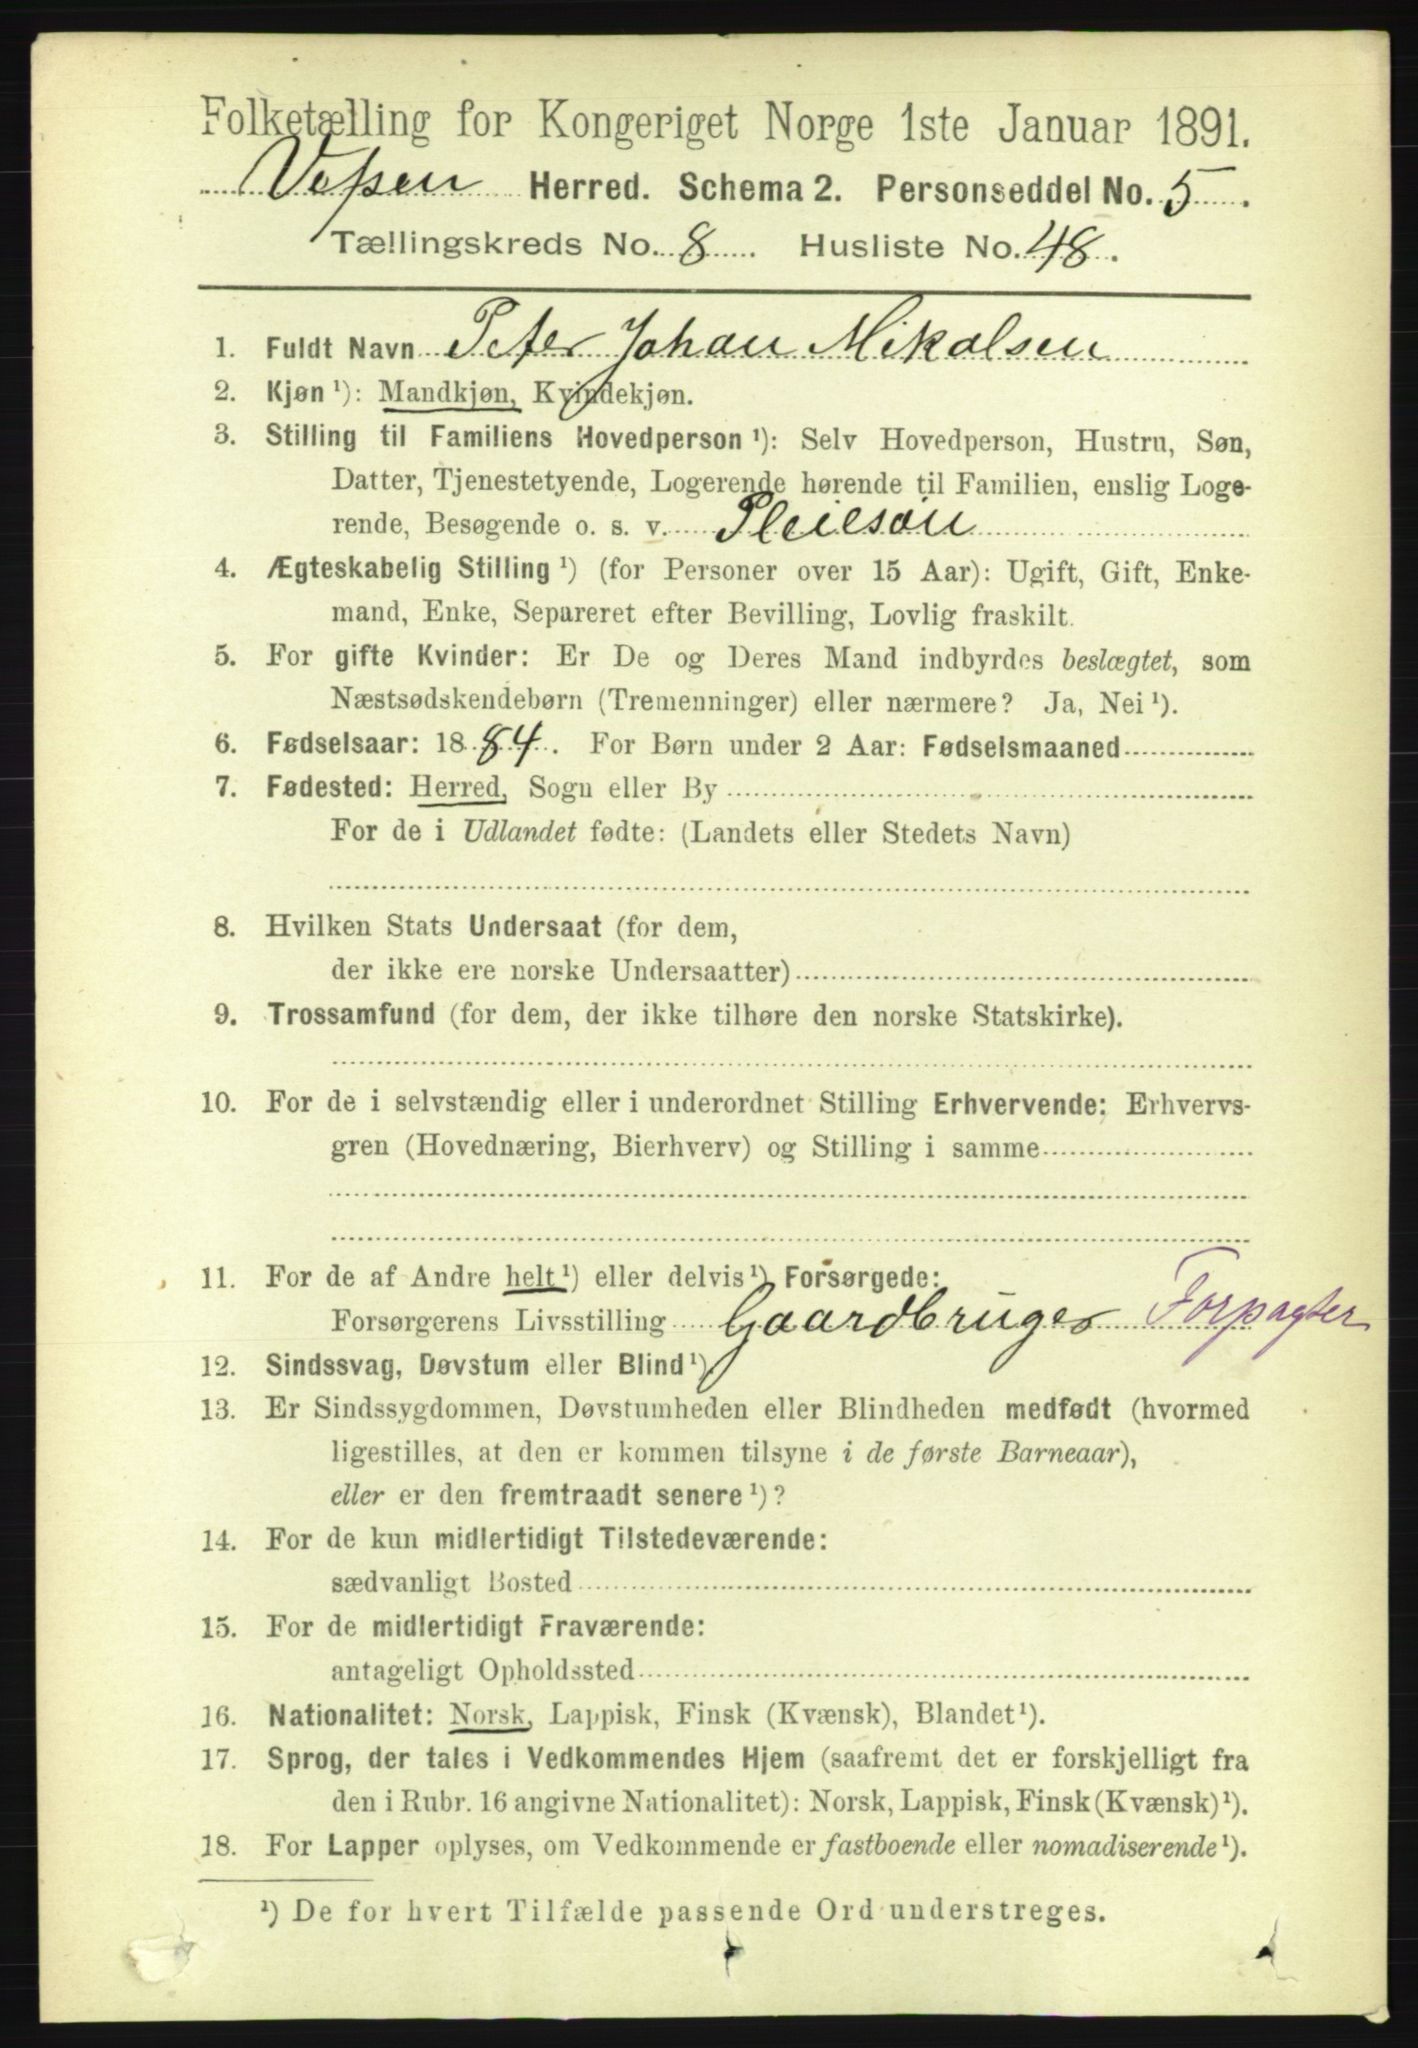 Folketælling for Kongeriget Norge 1ste Januar 1891.
Vefsen Herred. Schema 2. Personseddel No. 5.
Tællingskreds No. 8. Husliste No. 48.
1. Fuldt Navn Peter Johan Mikalsen
2. Kjøn ¹): Mandkjøn, Kvindekjøn.
3. Stilling til Familiens Hovedperson ¹): Selv Hovedperson, Hustru, Søn,
Datter, Tjenestetyende, Logerende hørende til Familien, enslig Loge-
rende, Besøgende o. s. v. Pleiesøn
4. Ægteskabelig Stilling ¹) (for Personer over 15 Aar): Ugift, Gift, Enke-
mand, Enke, Separeret efter Bevilling, Lovlig fraskilt.
5. For gifte Kvinder: Er De og Deres Mand indbyrdes beslægtet, som
Næstsødskendebørn (Tremenninger) eller nærmere? Ja, Nei ¹).
6. Fødselsaar: 1884. For Børn under 2 Aar: Fødselsmaaned
7. Fødested: Herred, Sogn eller By
For de i Udlandet fødte: (Landets eller Stedets Navn)
8. Hvilken Stats Undersaat (for dem,
der ikke ere norske Undersaatter)
9. Trossamfund (for dem, der ikke tilhøre den norske Statskirke).
10. For de i selvstændig eller i underordnet Stilling Erhvervende: Erhvervs-
gren (Hovednæring, Bierhverv) og Stilling i samme
11. For de af Andre helt ¹) eller delvis ¹) Forsørgede:
Forsørgerens Livsstilling Gaardbruger Forpagter
12. Sindssvag, Døvstum eller Blind ¹).
13. Er Sindssygdommen, Døvstumheden eller Blindheden medfødt (hvormed
ligestilles, at den er kommen tilsyne i de første Barneaar),
eller er den fremtraadt senere ¹)?
14. For de kun midlertidigt Tilstedeværende:
sædvanligt Bosted
15. For de midlertidigt Fraværende:
antageligt Opholdssted
16. Nationalitet: Norsk, Lappisk, Finsk (Kvænsk), Blandet ¹).
17. Sprog, der tales i Vedkommendes Hjem (saafremt det er forskjelligt fra
den i Rubr. 16 angivne Nationalitet): Norsk, Lappisk, Finsk (Kvænsk) ¹).
18. For Lapper oplyses, om Vedkommende er fastboende eller nomadiserende ¹).
¹) De for hvert Tilfælde passende Ord understreges.